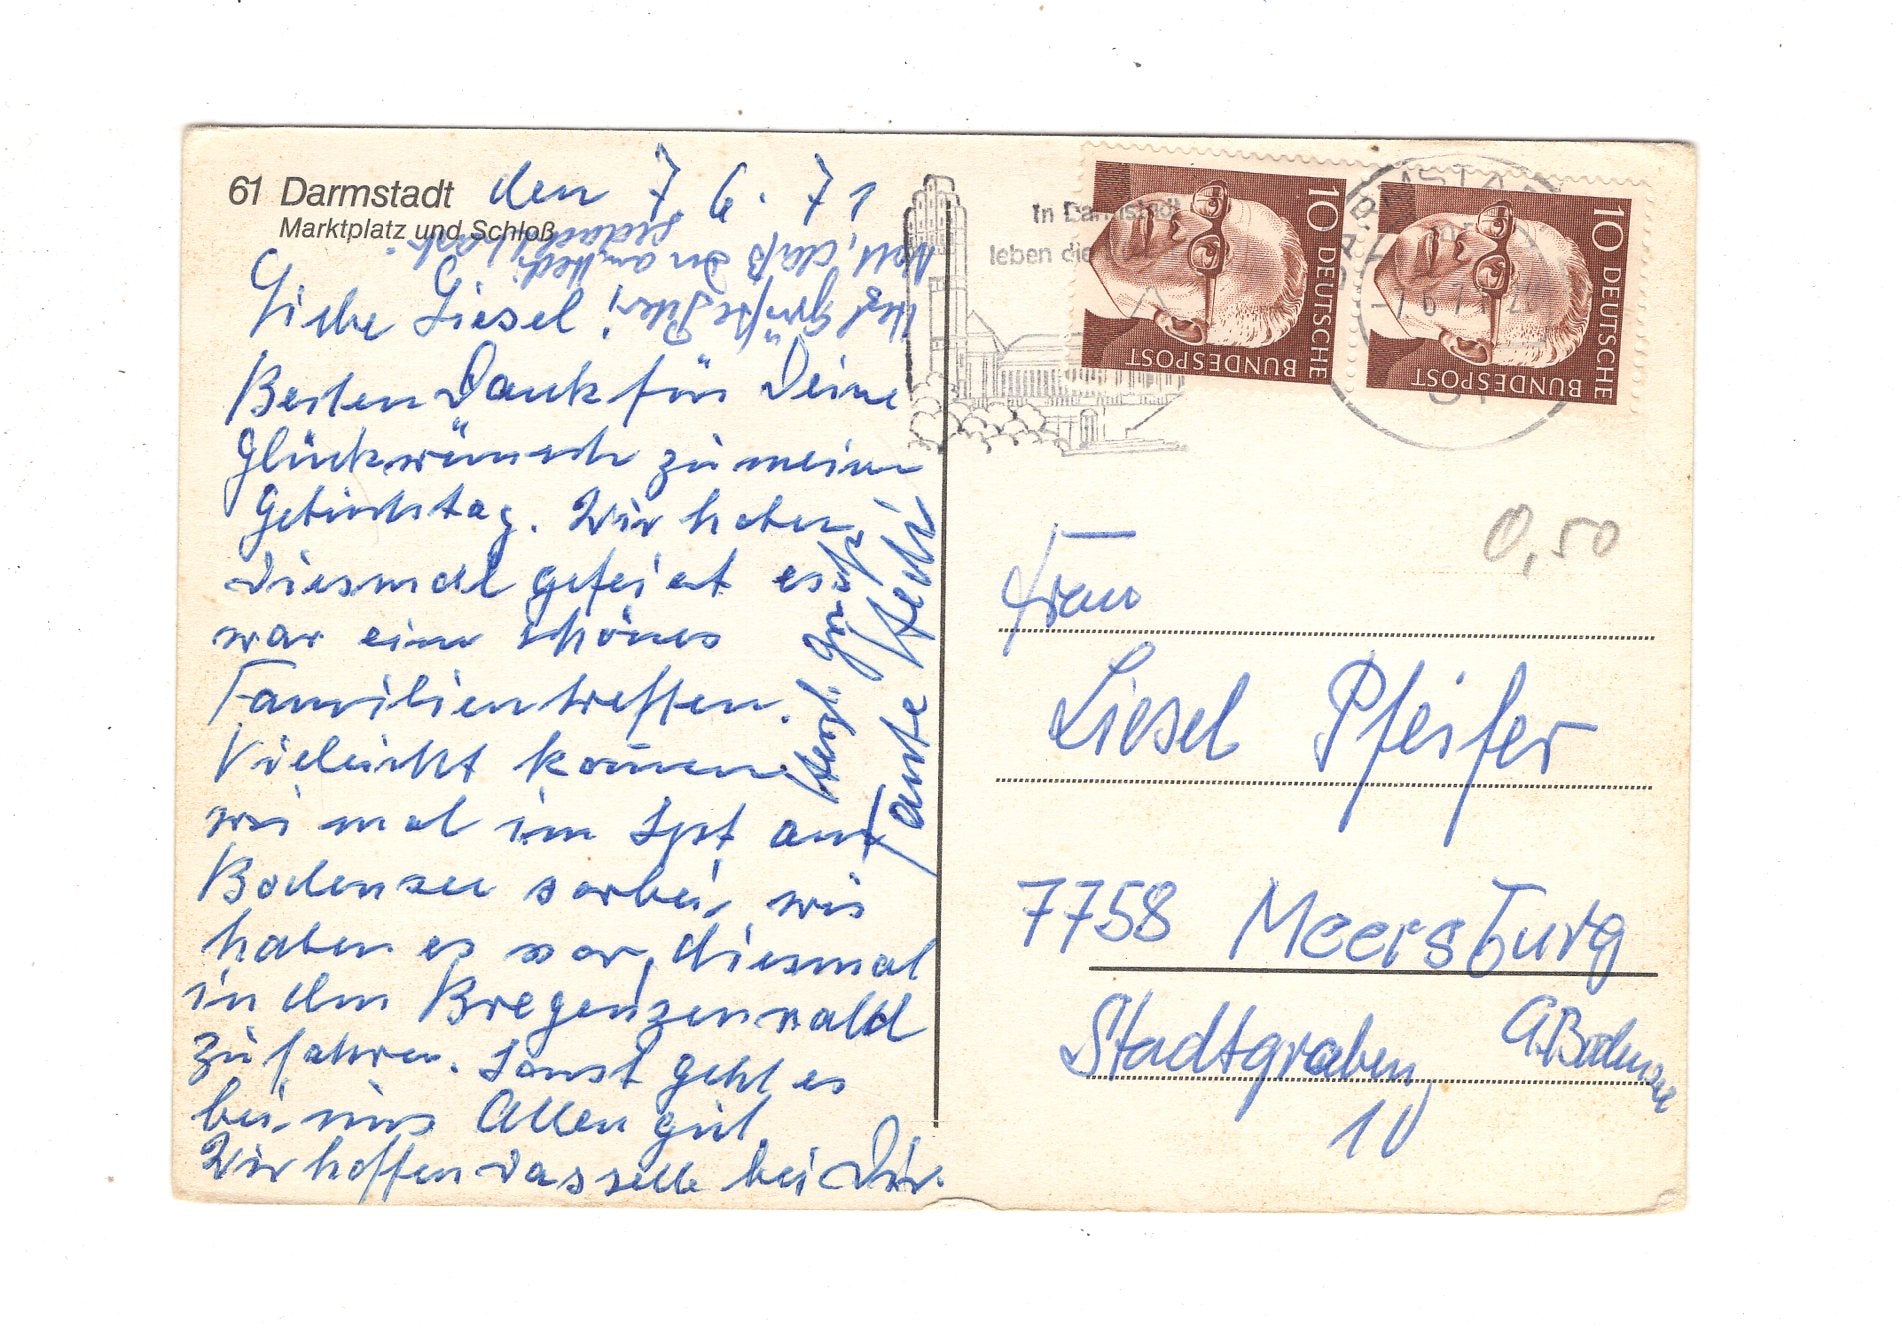 61 Darmstadt
Marktplatz und Schloß
den 7. 6. 71
Liebe Liesel!
Besten Dank für Deine
Glückwünsche zu meinem
Geburtstag. Wir haben
diesmal gefeiert es
war ein schönes
Familientreffen.
Vielleicht kommen
wir mal im Spt am
Bodensee vorbei, wir
haben es vor, diesmal
in den Bregenzerwald
zu fahren. Sonst geht es
bei uns Allen gut.
Wir hoffen dasselbe bei Dir.
Herzl. Grüße
Tante Hedi
Nett, daß Du an Hedi
gedacht hast.
Grüße
In Darmstadt
leben die
10 DEUTSCHE
BUNDESPOST
10 DEUTSCHE
BUNDESPOST
-7.6.71
61
0,50
Frau
Liesel Pfeifer
7758 Meersburg
a. Bodensee
Stadtgraben
10